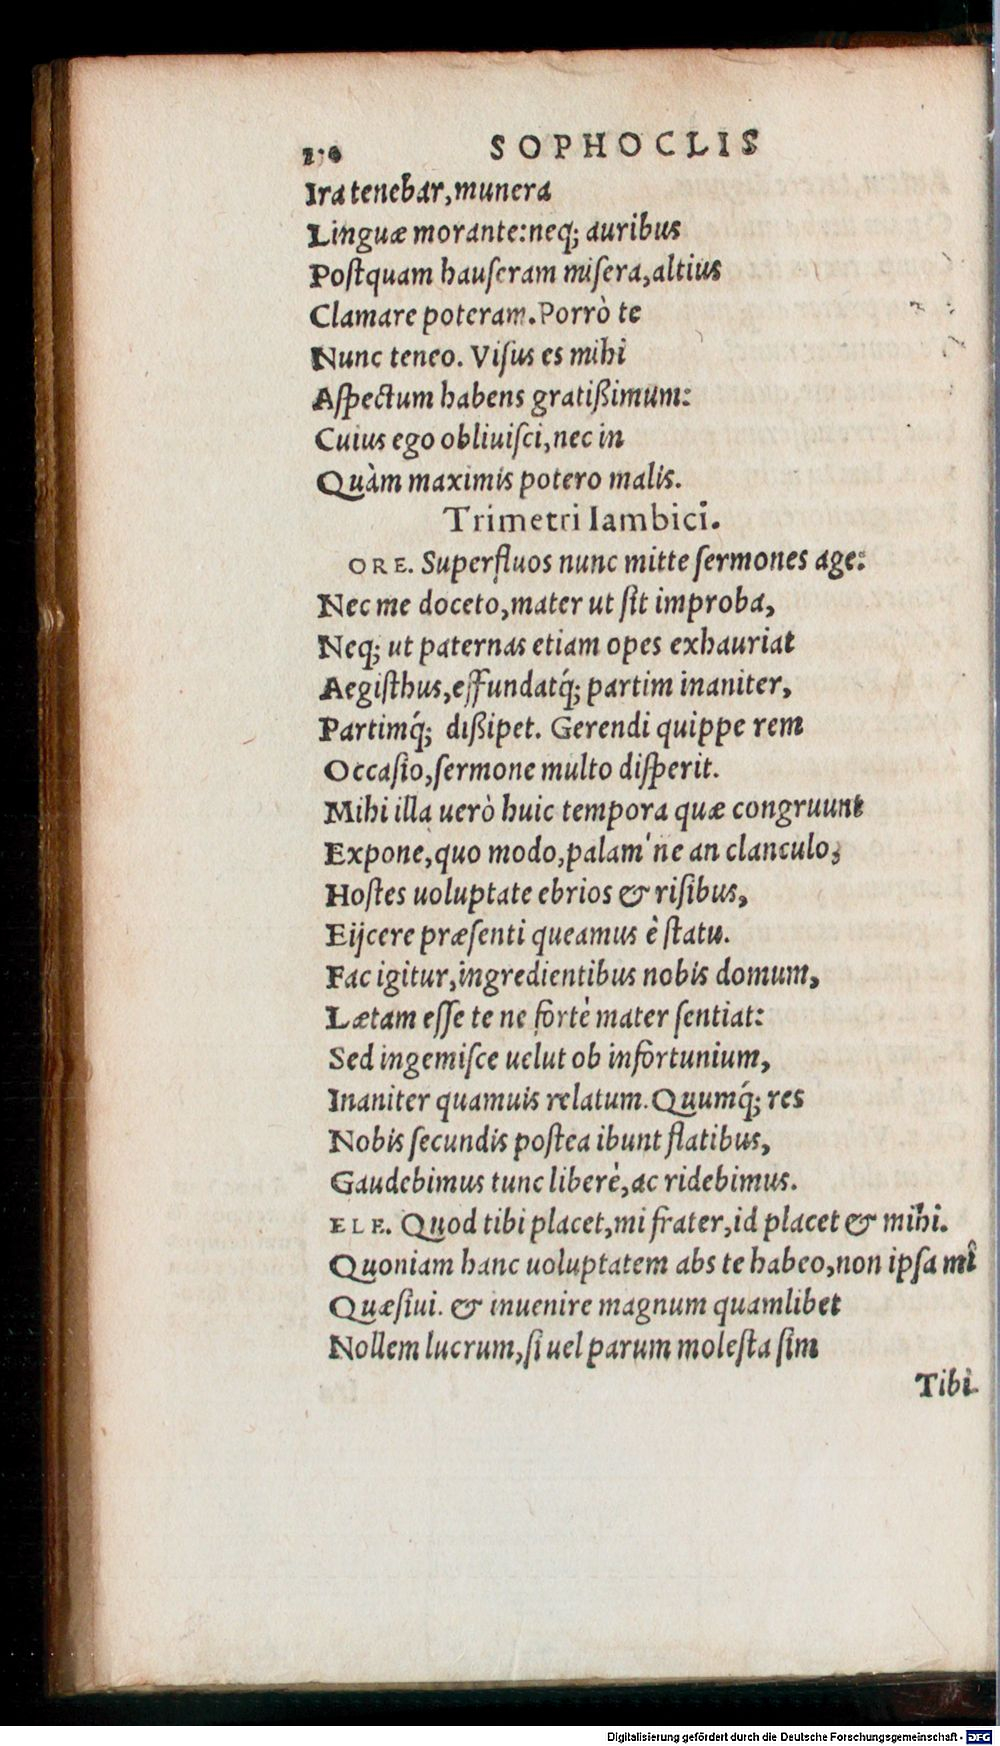 SOPHOCLIS
Ira tenebar, munera
Linguæ morante: neq; auribus
Poſtquam hauſeram miſera, altius
Clamare poteram. Porrò te
Nunc teneo. Viſus es mihi
Aſpectum habens gratißimum:
Cuius ego obliuiſci, nec in
Quàm maximis potero malis.
Trimetri Iambici.
ORE. Superfluos nunc mitte ſermones age:
Nec me doceto, mater ut ſit improba,
Neq; ut paternas etiam opes exhauriat
Aegiſthus, effundatq́; partim inaniter,
Partimq́; dißipet. Gerendi quippe rem
Occaſio, ſermone multo diſperit.
Mihi illa uerò huic tempora quæ congruunt
Expone, quo modo, palam'ne an clanculo,
Hoſtes uoluptate ebrios & riſibus,
Eijcere præſenti queamus è ſtatu.
Fac igitur, ingredientibus nobis domum,
Lætam eſſe te ne fortè mater ſentiat:
Sed ingemiſce uelut ob infortunium,
Inaniter quamuis relatum. Quumq́; res
Nobis ſecundis poſtea ibunt flatibus,
Gaudebimus tunc liberè, ac ridebimus.
ELE. Quod tibi placet, mi frater, id placet & mihi.
Quoniam hanc uoluptatem abs te habeo, non ipſa mî
Quæſiui. & inuenire magnum quamlibet
Nollem lucrum, ſi uel parum moleſta ſim
Tibi.
Digitalisierung gefördert durch die Deutsche Forschungsgemeinschaft - DFG